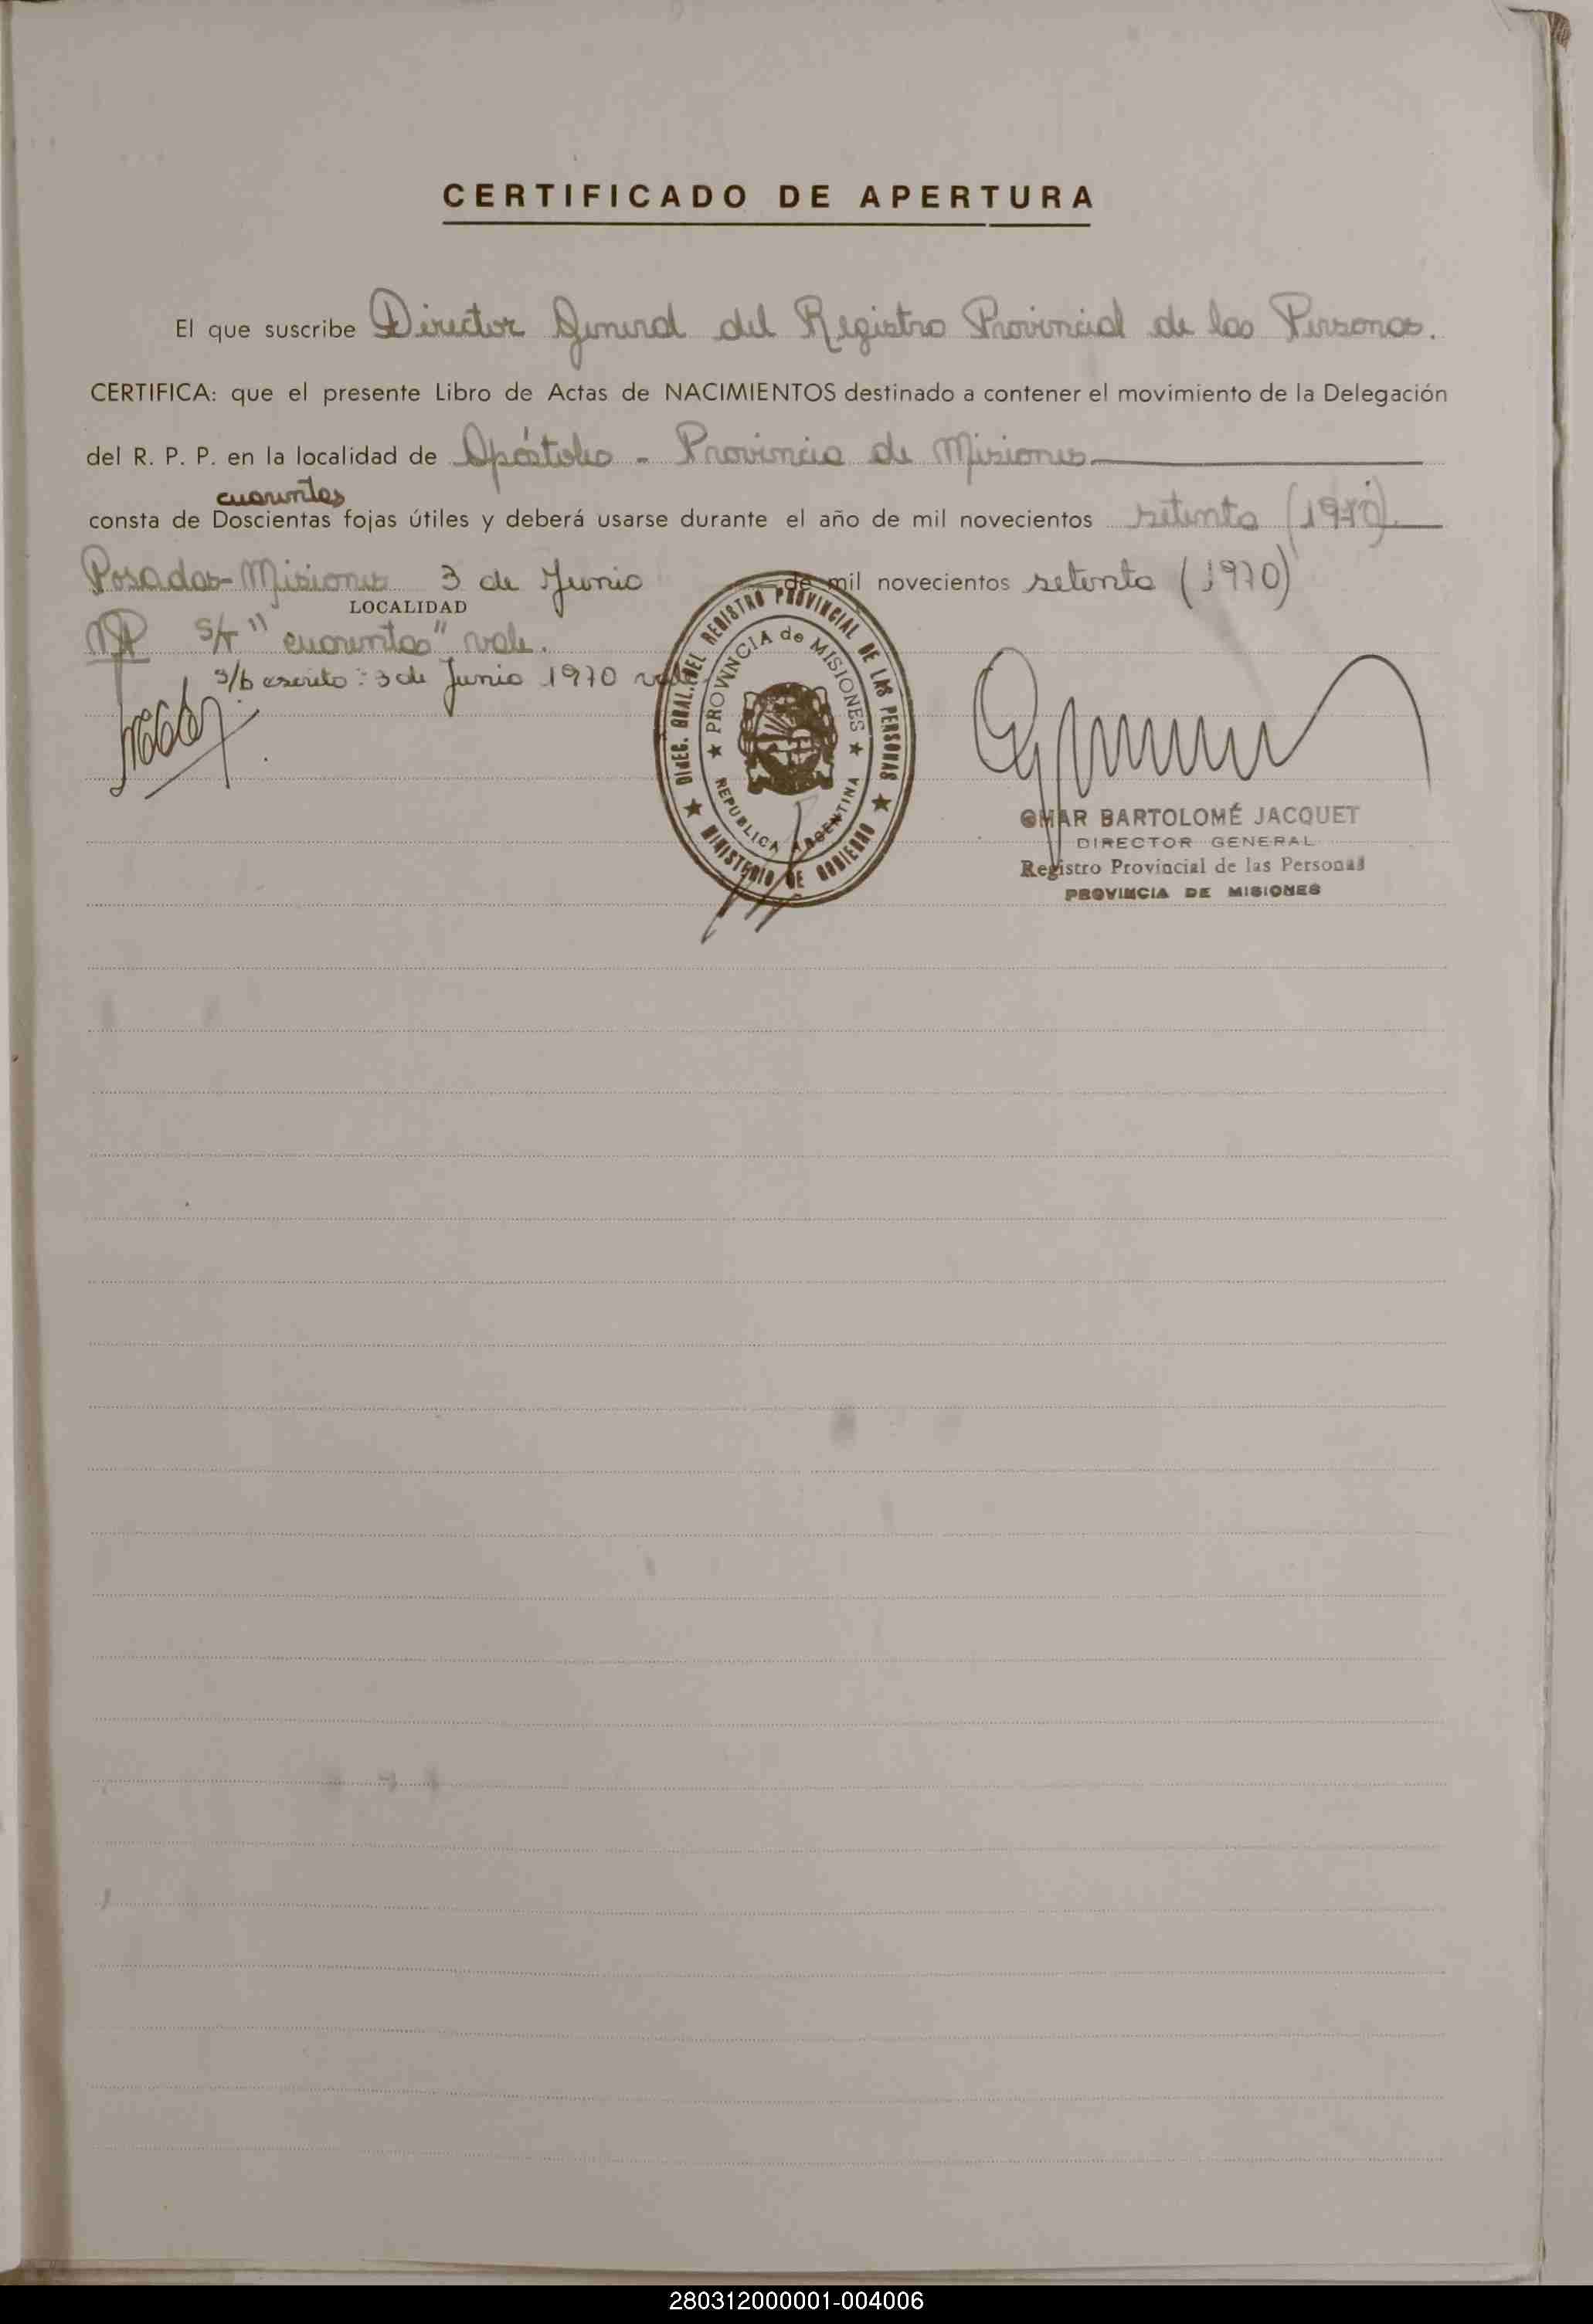 CERTIFICADO DE APERTURA
El que suscribe Director General del Registro Provincial de las Personas.
CERTIFICA: que el presente Libro de Actas de NACIMIENTOS destinado a contener el movimiento de la Delegación
del R. P. P. en la localidad de Apóstoles - Provincia de Misiones
cuarentas
consta de Doscientas fojas útiles y deberá usarse durante el año de mil novecientos setenta (1970).
Posadas - Misiones 3 de Junio de mil novecientos setenta (1970)
LOCALIDAD
S/r "cuarentas" vale.
s/b escrito: 3 de Junio 1970 vale.
DIREC. GRAL. DEL REGISTRO PROVINCIAL DE LAS PERSONAS
★ MINISTERIO DE GOBIERNO ★
★ PROVINCIA de MISIONES ★
REPUBLICA ARGENTINA
OMAR BARTOLOMÉ JACQUET
DIRECTOR GENERAL
Registro Provincial de las Personas
PROVINCIA DE MISIONES
280312000001-004006